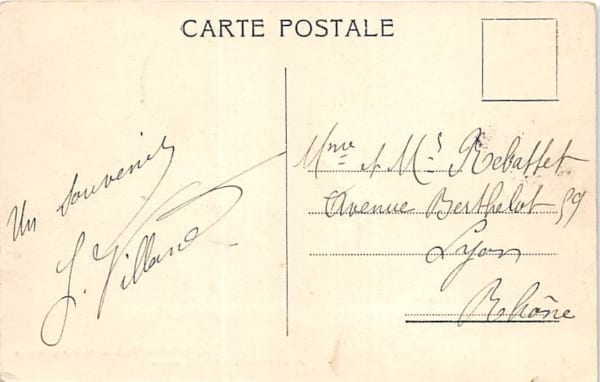 CARTE POSTALE
Un souvenir
J. Villard
Mme et Mr Rebattet
Avenue Berthelot 59
Lyon
Rhône